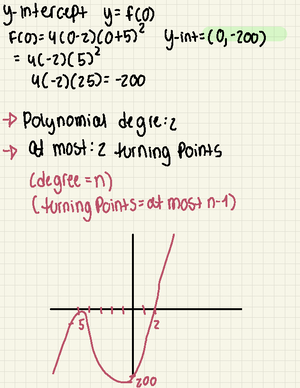 y-intercept y=f(0)
F(0)=4(0-2)(0+5)² y-int=(0,-200)
=4(-2)(5)²
4(-2)(25)=-200
→ Polynomial degre:2
→ at most:2 turning Points
(degree=n)
(turning Points=at most n-1)
-5 2
-200